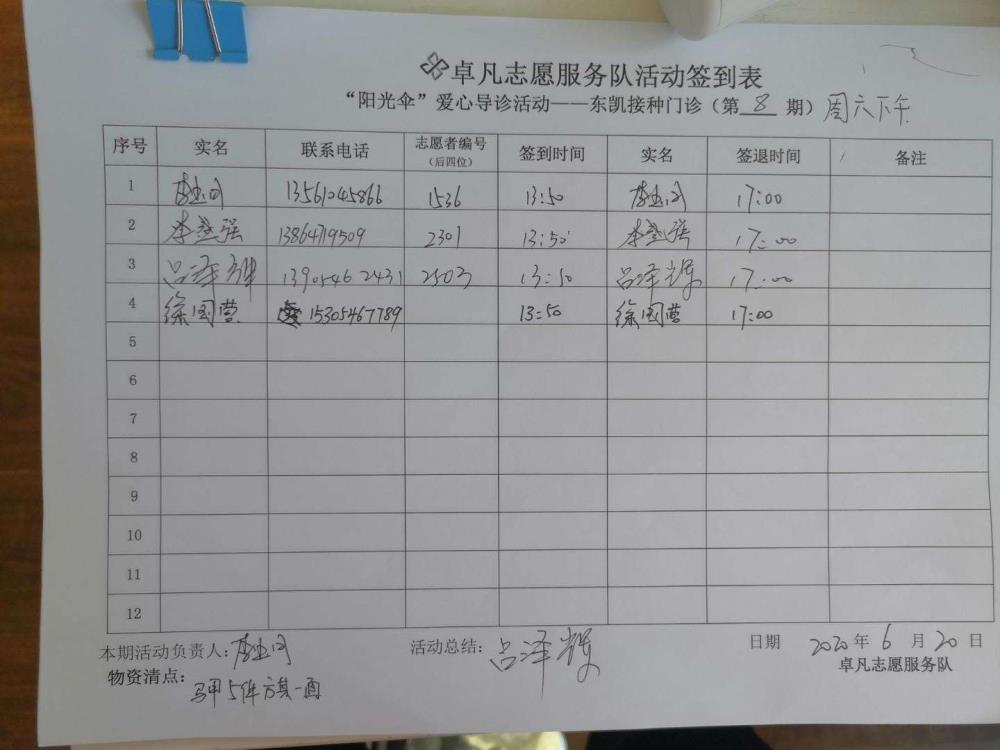 卓凡志愿服务队活动签到表
“阳光伞”爱心导诊活动——东凯接种门诊（第 8 期）周六下午
序号 实名 联系电话 志愿者编号（后四位） 签到时间 实名 签退时间 备注
1 13561045866 1536 13:50 17:00
2 李登强 13864719509 2301 13:50 李登强 17:00
3 吕泽辉 13905462431 2503 13:50 吕泽辉 17:00
4 徐国营 15305467789 13:50 徐国营 17:00
5
6
7
8
9
10
11
12
本期活动负责人： 活动总结：吕泽辉 日期 2020年 6 月 20 日
物资清点：马甲5件 旗一面 卓凡志愿服务队